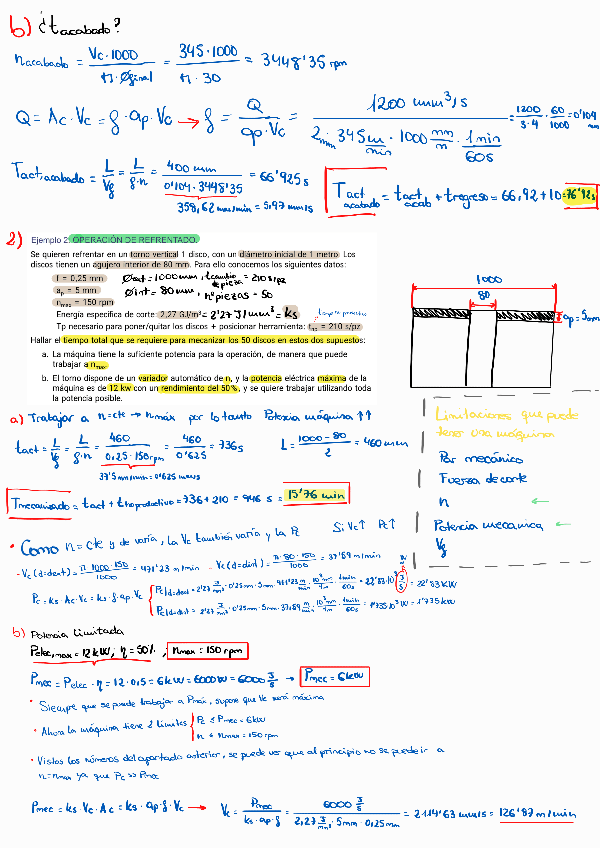 b) ¿tacabado?
nacabado = Vc·1000 / π·Øfinal = 345·1000 / π·30 = 3448'35 rpm
Q = Ac·Vc = f·ap·Vc → f = Q / ap·Vc = 1200 mm³/s / 2mm·345 m/min·1000 mm/m·1min/60s = 1200/3·4 · 60/1000 = 0'104 mm
Tact,acabado = L/Vf = L/f·n = 400 mm / 0'104·3448'35 = 66'925 s
358,62 mm/min = 5,97 mm/s
Tact acabado = tact acab + tregreso = 66,92 + 10 = 76'92 s
2) Ejemplo 2: OPERACIÓN DE REFRENTADO.
Se quieren refrentar en un torno vertical 1 disco, con un diámetro inicial de 1 metro. Los
discos tienen un agujero interior de 80 mm. Para ello conocemos los siguientes datos:
f = 0,25 mm Øext = 1000 mm, tcambio de pieza = 210 s/pz
ap = 5 mm Øint = 80 mm, nº piezas = 50
nmax = 150 rpm
Energía específica de corte: 2,27 GJ/m³ = 2'27 J/mm³ = ks
Tp necesario para poner/quitar los discos + posicionar herramienta: = 210 s/pz
Hallar el tiempo total que se requiere para mecanizar los 50 discos en estos dos supuestos:
a. La máquina tiene la suficiente potencia para la operación, de manera que puede
trabajar a nmax.
b. El torno dispone de un variador automático de n, y la potencia eléctrica máxima de la
máquina es de 12 kw con un rendimiento del 50%, y se quiere trabajar utilizando toda
la potencia posible.
1000
80
ap = 5mm
a) Trabajar a n=cte → nmáx por lo tanto Potencia máquina ↑↑
tact = L/Vf = L/f·n = 460 / 0,25·150rpm = 460 / 0'625 = 736 s L = 1000-80 / 2 = 460 mm
37'5 mm/min = 0'625 mm/s
Tmecanizado = tact + tnoproductivo = 736 + 210 = 946 s = 15'76 min
Limitaciones que puede
tener una máquina
Par mecánico
Fuerza de corte
n ←
Potencia mecánica ←
Vf
• Como n=cte y d varía, la Vc también varía y la Pc Si Vc↑ Pc↑
- Vc (d=dext) = π·1000·150 / 1000 = 471'23 m/min - Vc (d=dint) = π·80·150 / 1000 = 37'69 m/min
Pc = ks·Ac·Vc = ks·f·ap·Vc
Pc|d=dext = 2'27 J/mm³·0'25mm·5mm·471'23 m/min·10³mm/1m·1min/60s = 22'83·10³ J/s = 22'83 kW
Pc|d=dint = 2'27 J/mm³·0'25mm·5mm·37,69 m/min·10³mm/1m·1min/60s = 1'735·10³ W = 1'735 kW
b) Potencia Limitada
Pelec,max = 12 kW, η = 50%, nmax = 150 rpm
Pmec = Pelec·η = 12·0,5 = 6kW = 6000W = 6000 J/s → Pmec = 6kW
• Siempre que se puede trabajar a Pmax, supone que Vc será máxima
• Ahora la máquina tiene 2 límites
Pc ≤ Pmec = 6kW
n ≤ nmax = 150 rpm
• Vistos los números del apartado anterior, se puede ver que al principio no se puede ir a
n=nmax ya que Pc >> Pmec
Pmec = ks·Vc·Ac = ks·ap·f·Vc → Vc = Pmec / ks·ap·f = 6000 J/s / 2,27 J/mm³·5mm·0,25mm = 2114'63 mm/s = 126'87 m/min